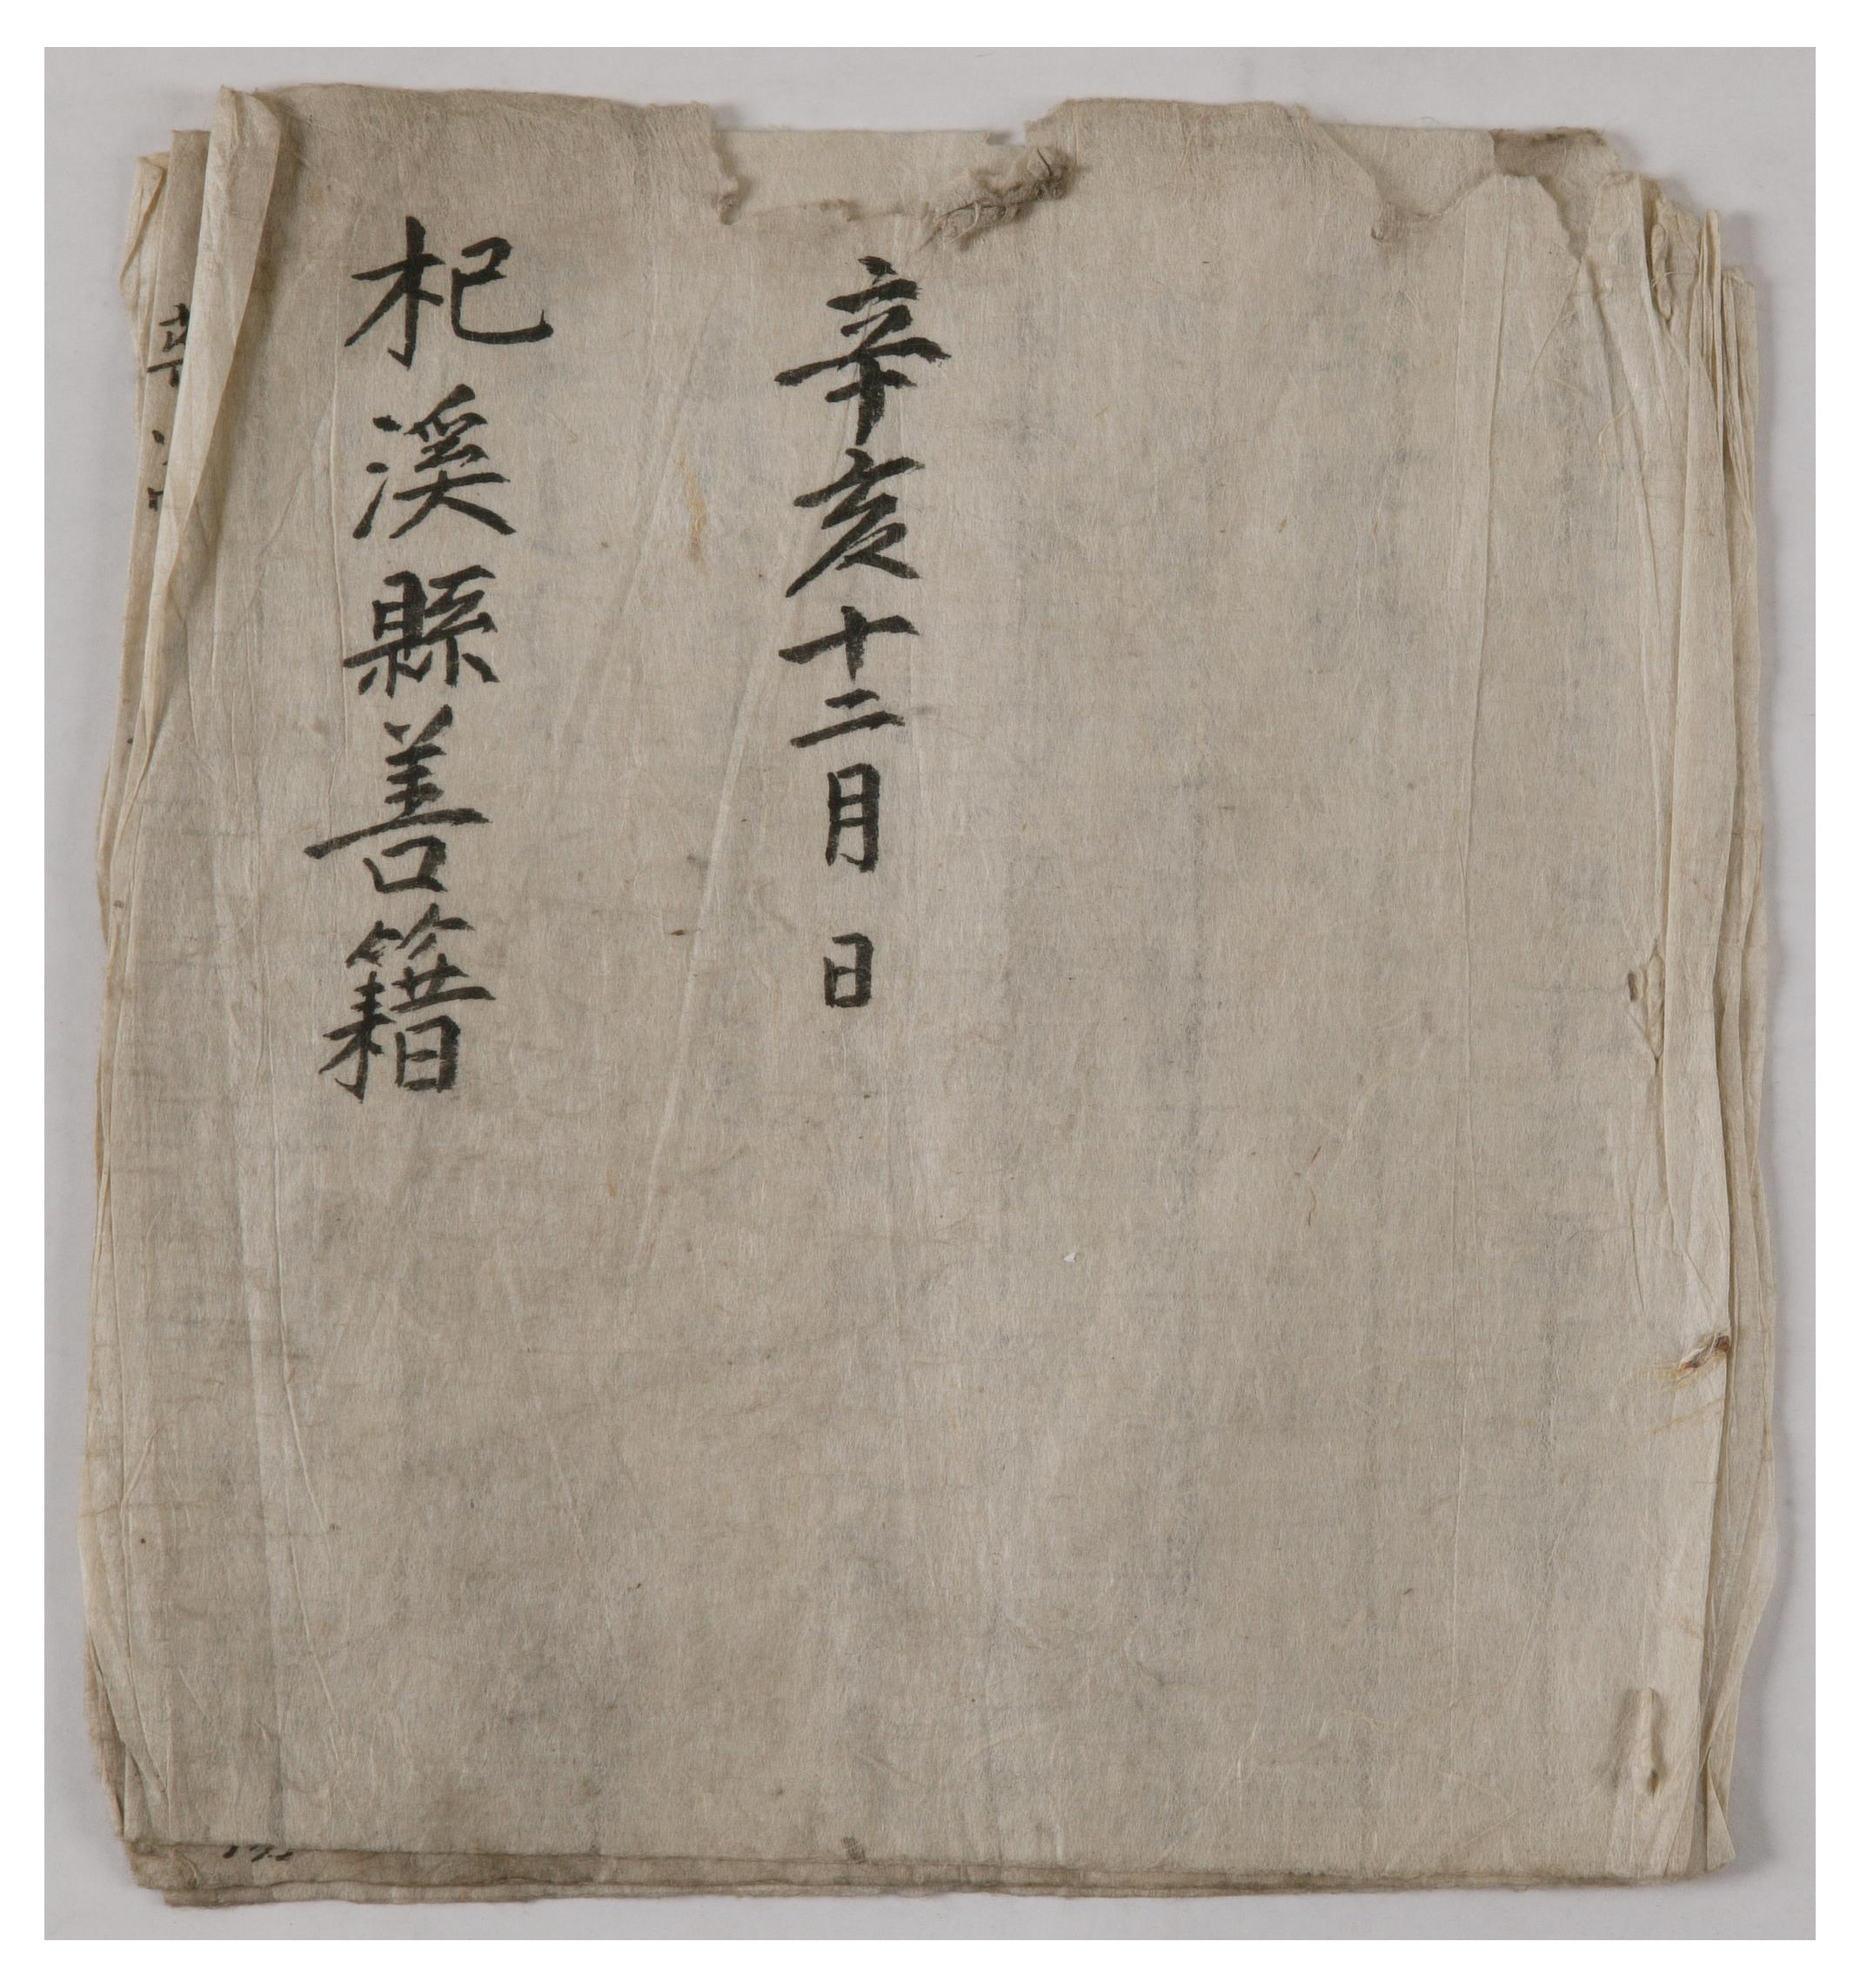 辛亥十二月 日
杞溪縣善籍